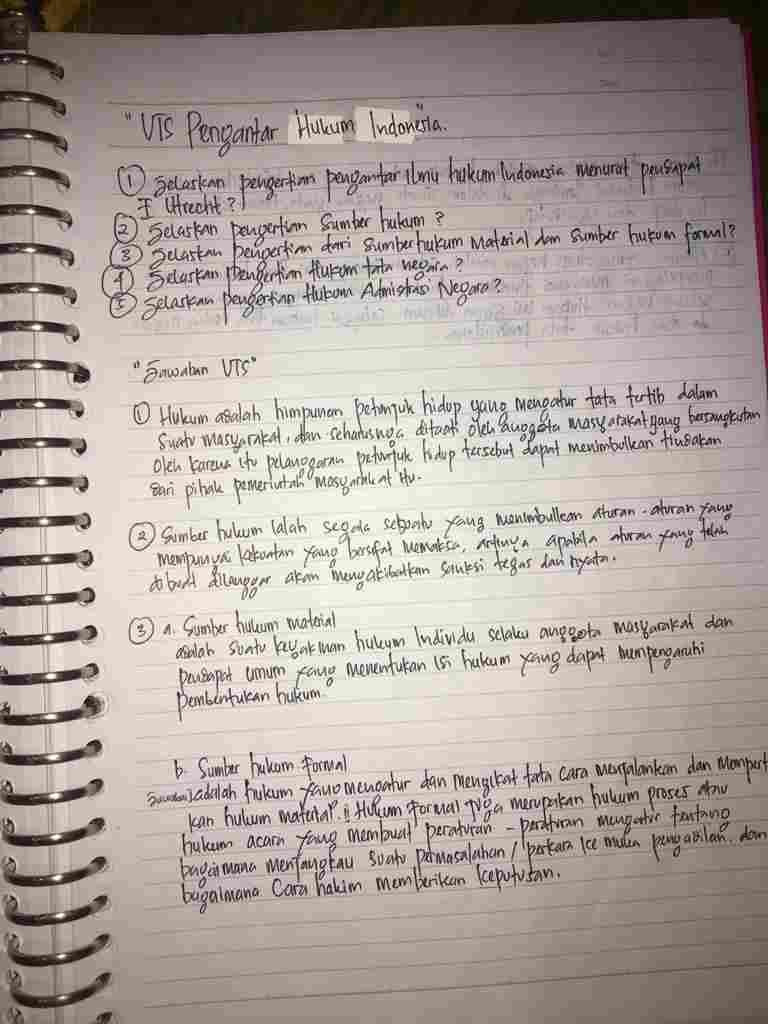 "UTS Pengantar Hukum Indonesia."
① Jelaskan pengertian pengantar ilmu hukum Indonesia menurut pendapat
E Utrecht?
② Jelaskan pengertian Sumber hukum?
③ Jelaskan pengertian dari sumber hukum Material dan Sumber hukum formal?
④ Jelaskan Pengertian Hukum tata negara?
⑤ Jelaskan pengertian Hukum Admistrasi Negara?
"Jawaban UTS"
① Hukum adalah himpunan petunjuk hidup yang mengatur tata tertib dalam
suatu masyarakat, dan seharusnya ditaati oleh anggota masyarakat yang bersangkutan
oleh karena itu pelanggaran petunjuk hidup tersebut dapat menimbulkan tindakan
dari pihak pemerintah masyarakat itu.
② Sumber hukum ialah segala sesuatu yang menimbulkan aturan-aturan yang
mempunyai kekuatan yang bersifat memaksa, artinya apabila aturan yang telah
dibuat dilanggar akan mengakibatkan sanksi tegas dan nyata.
③ a. Sumber hukum material
adalah suatu keyakinan hukum Individu selaku anggota masyarakat dan
pendapat umum yang menentukan isi hukum yang dapat mempengaruhi
pembentukan hukum.
b. Sumber hukum formal
Jawaban) adalah hukum yang mengatur dan mengikat tata cara menjalankan dan mempert
kan hukum material. Hukum formal juga merupakan hukum proses atau
hukum acara yang membuat peraturan-peraturan mengatur tentang
bagaimana menjangkau suatu permasalahan/perkara ke muka pengadilan, dan
bagaimana Cara hakim memberikan keputusan.